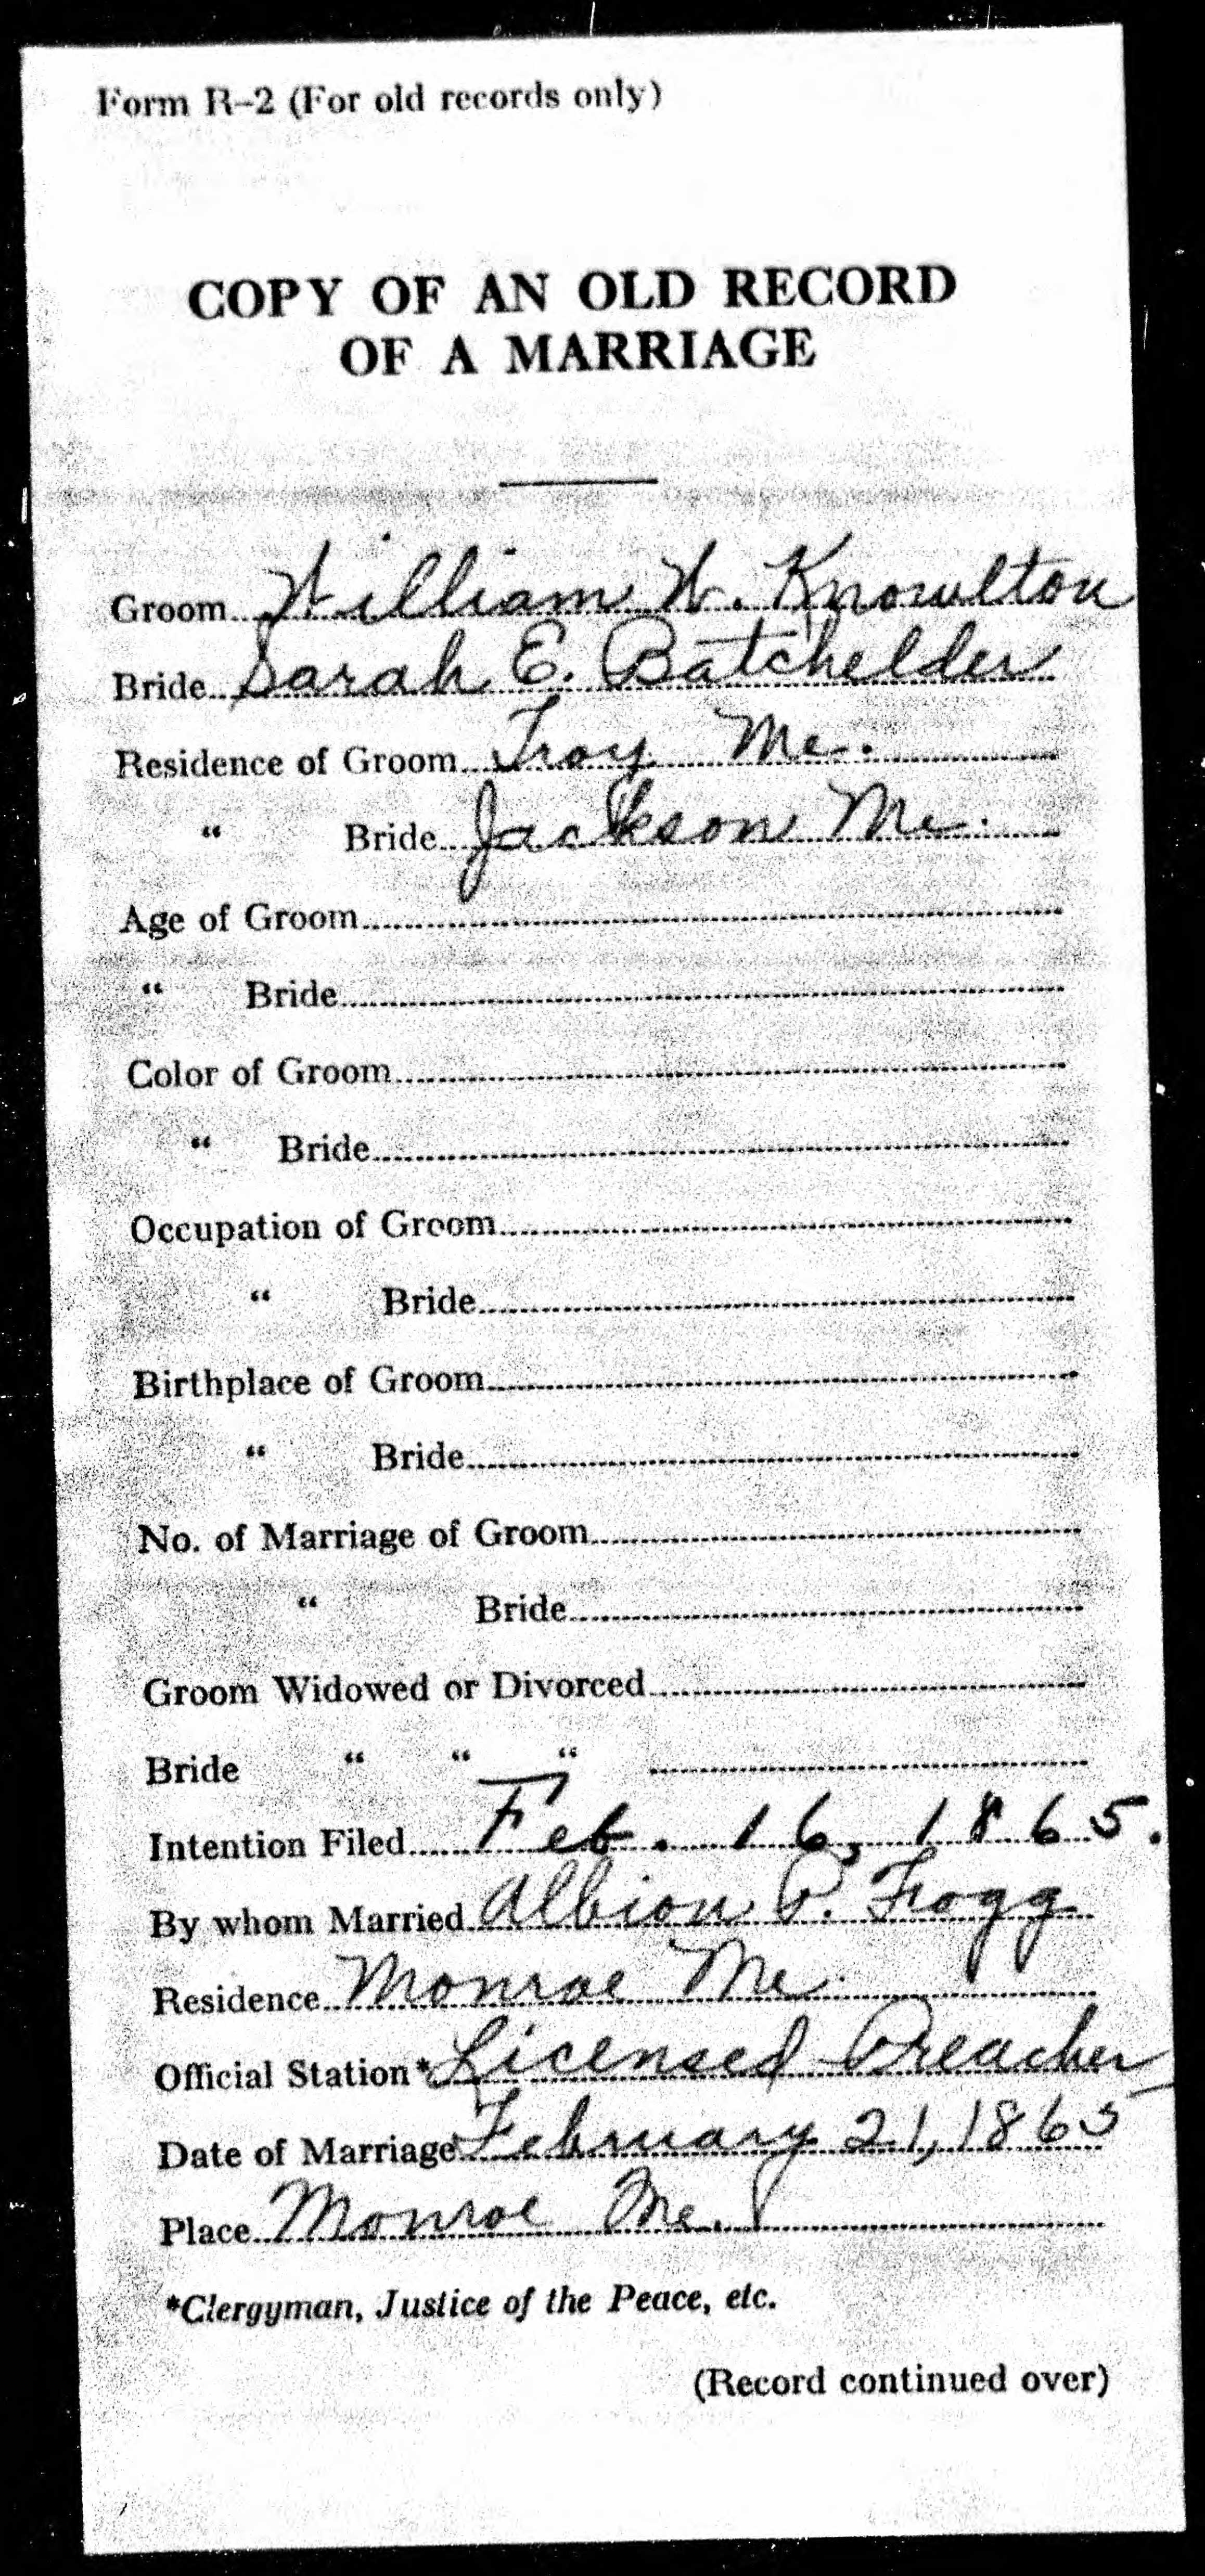 Form R-2 (For old records only)
COPY OF AN OLD RECORD
OF A MARRIAGE
Groom William W. Knowlton
Bride Sarah E. Batchelder
Residence of Groom Troy Me.
" Bride Jackson Me.
Age of Groom
" Bride
Color of Groom
" Bride
Occupation of Groom
" Bride
Birthplace of Groom
" Bride
No. of Marriage of Groom
" Bride
Groom Widowed or Divorced
Bride " " "
Intention Filed Feb. 16, 1865.
By whom Married Albion P. Fogg
Residence Monroe Me.
Official Station* Licensed Preacher
Date of Marriage February 21, 1865
Place Monroe Me.
*Clergyman, Justice of the Peace, etc.
(Record continued over)